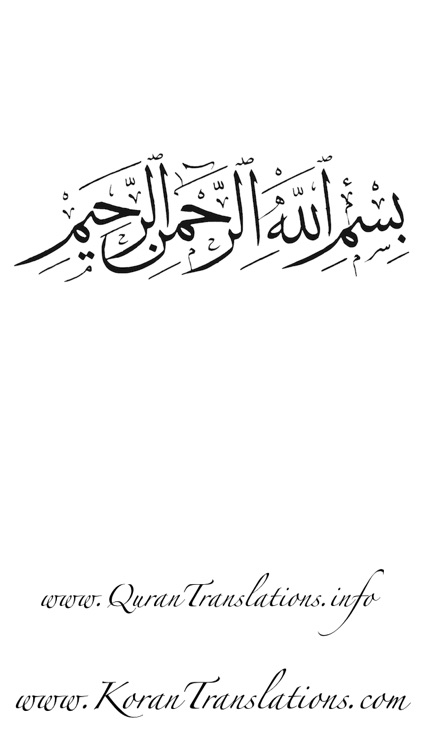 بِسْمِ اللَّهِ الرَّحْمَٰنِ الرَّحِيمِ
www.QuranTranslations.info
www.KoranTranslations.com